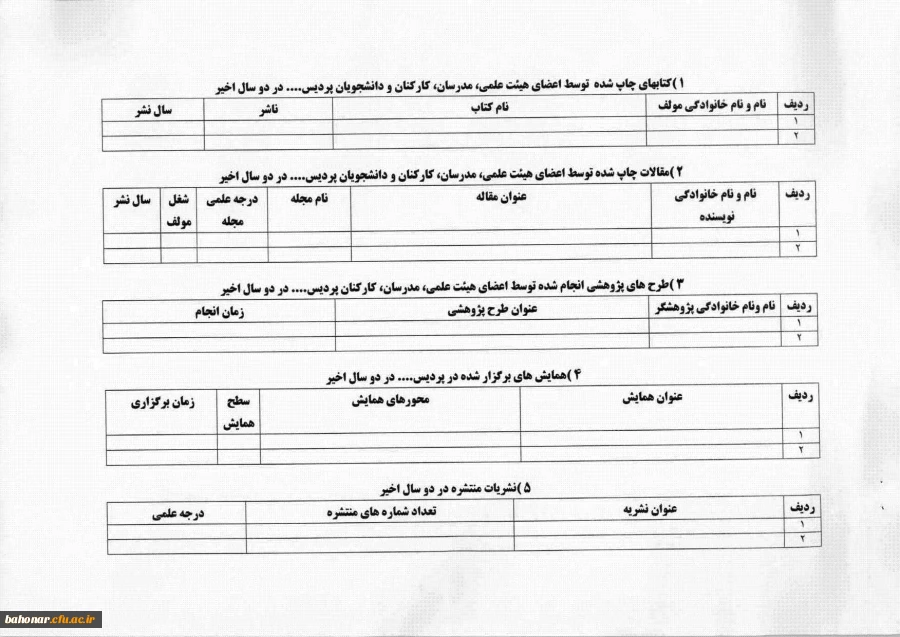 ۱)کتابهای چاپ شده توسط اعضای هیئت علمی، مدرسان، کارکنان و دانشجویان پردیس.... در دو سال اخیر
ردیف نام و نام خانوادگی مولف نام کتاب ناشر سال نشر
۱
۲
۲)مقالات چاپ شده توسط اعضای هیئت علمی، مدرسان، کارکنان و دانشجویان پردیس.... در دو سال اخیر
ردیف نام و نام خانوادگی عنوان مقاله نام مجله درجه علمی شغل سال نشر
نویسنده مجله مولف
۱
۲
۳)طرح های پژوهشی انجام شده توسط اعضای هیئت علمی، مدرسان، کارکنان پردیس.... در دو سال اخیر
ردیف نام ونام خانوادگی پژوهشگر عنوان طرح پژوهشی زمان انجام
۱
۲
۴)همایش های برگزار شده در پردیس.... در دو سال اخیر
ردیف عنوان همایش محورهای همایش سطح زمان برگزاری
همایش
۱
۲
۵)نشریات منتشره در دو سال اخیر
ردیف عنوان نشریه تعداد شماره های منتشره درجه علمی
۱
۲
bahonar.cfu.ac.ir